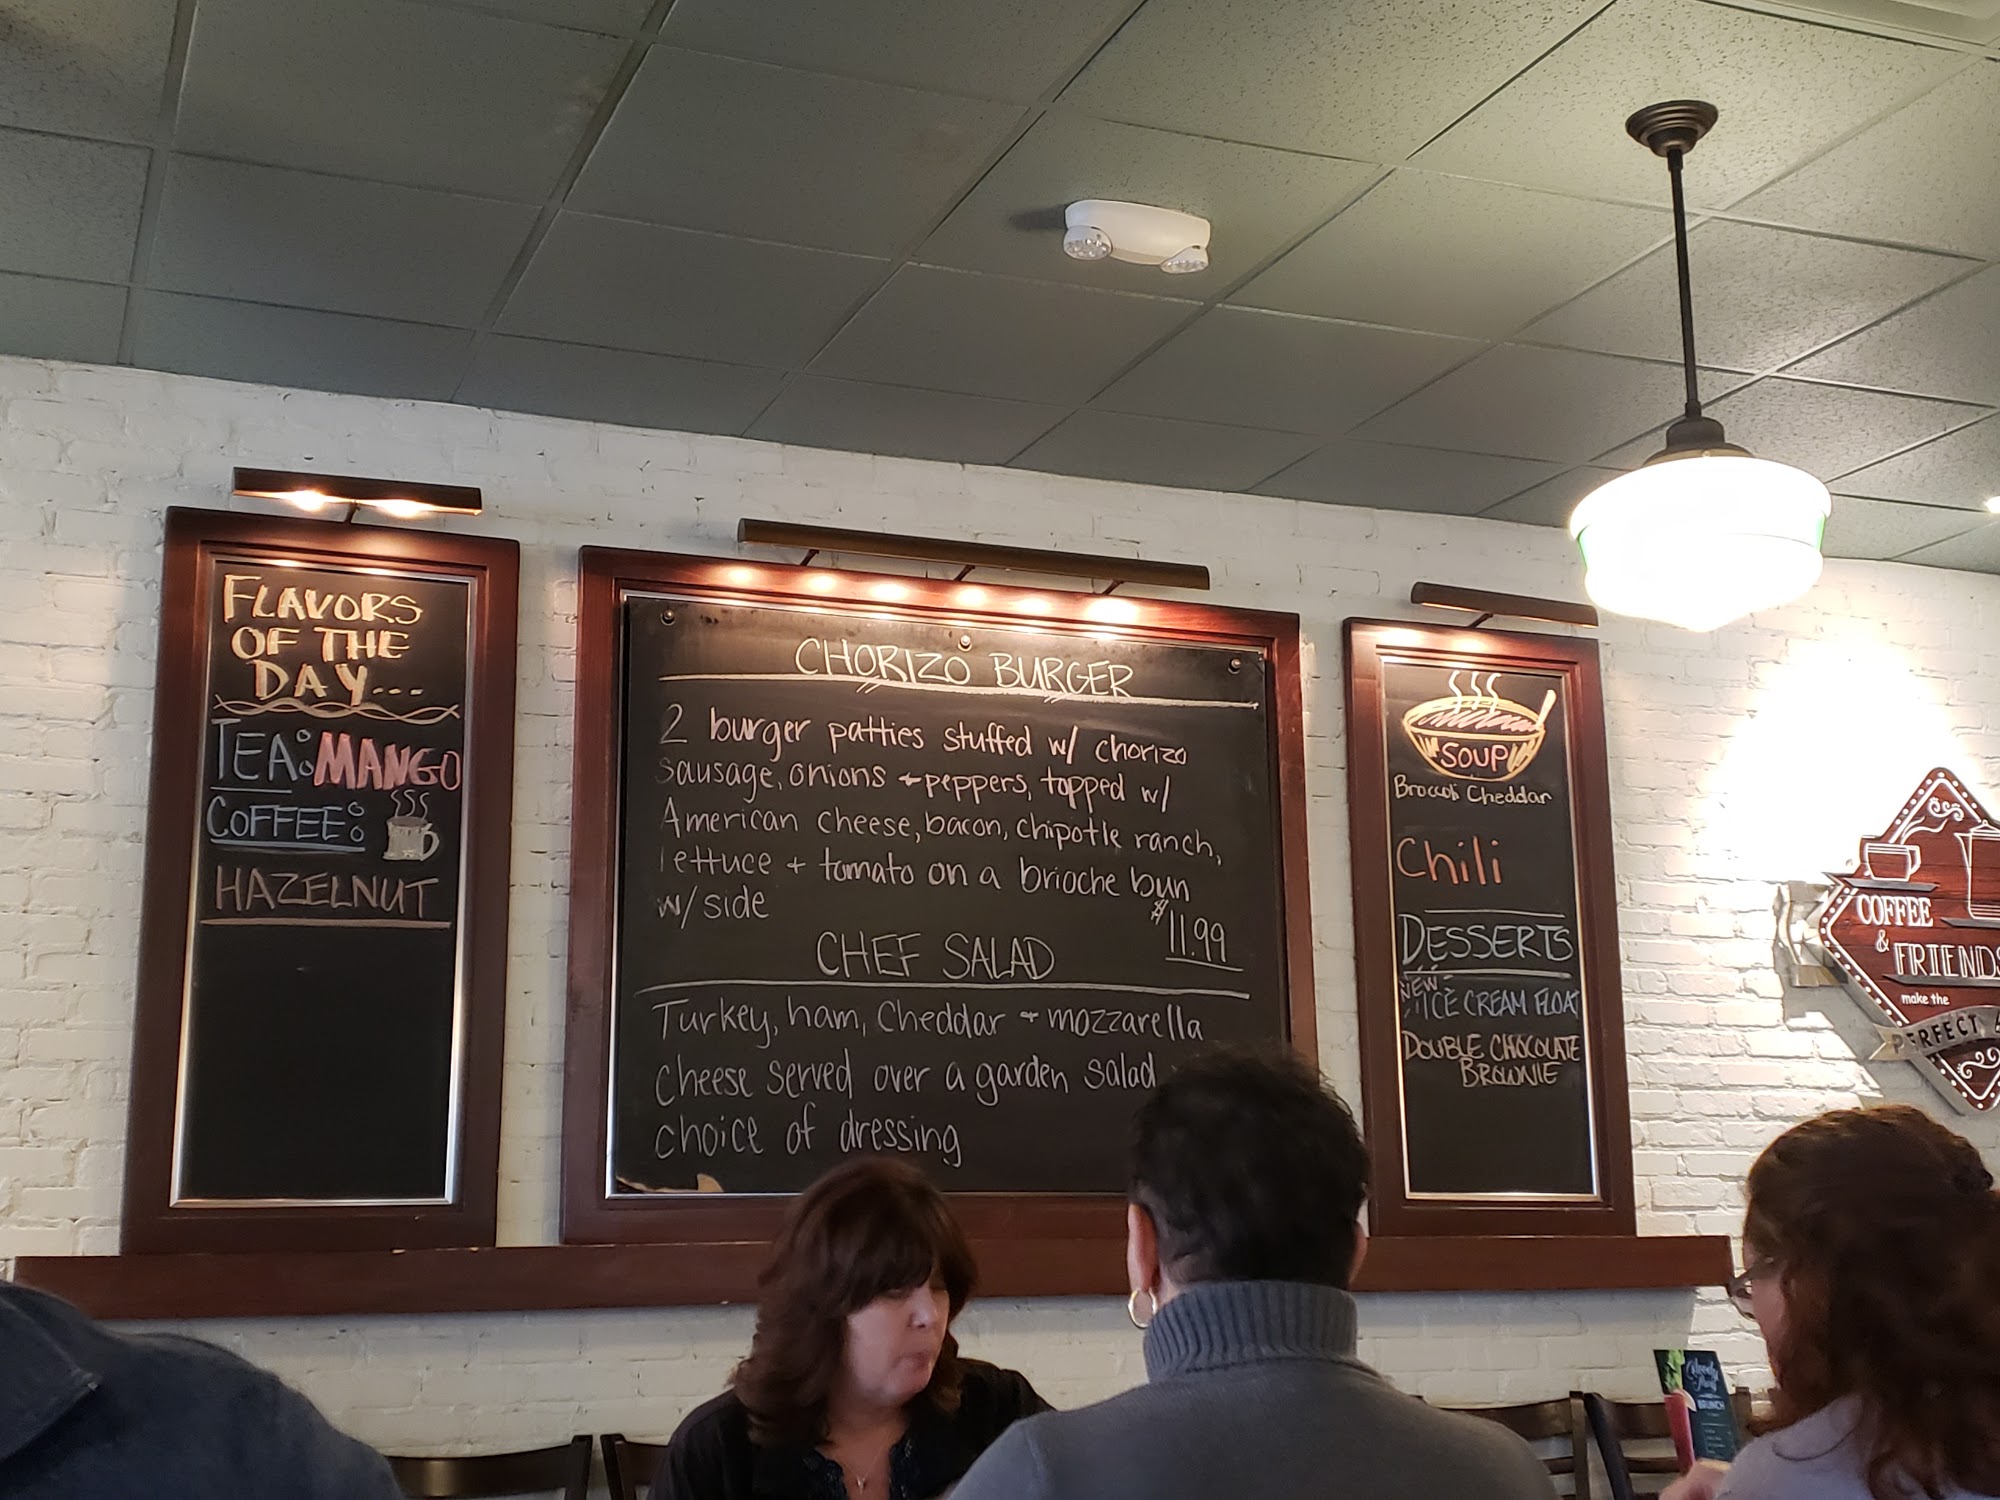 FLAVORS
OF THE
DAY...
TEA: MANGO
COFFEE:
HAZELNUT
CHORIZO BURGER
2 burger patties stuffed w/ chorizo
sausage, onions + peppers, topped w/
American cheese, bacon, chipotle ranch,
lettuce + tomato on a brioche bun
w/ side
$11.99
CHEF SALAD
Turkey, ham, cheddar + mozzarella
cheese served over a garden salad
choice of dressing
SOUP
Broccoli Cheddar
Chili
DESSERTS
NEW
ICE CREAM FLOAT
DOUBLE CHOCOLATE
BROWNIE
COFFEE
& FRIENDS
make the
PERFECT
BRUNCH